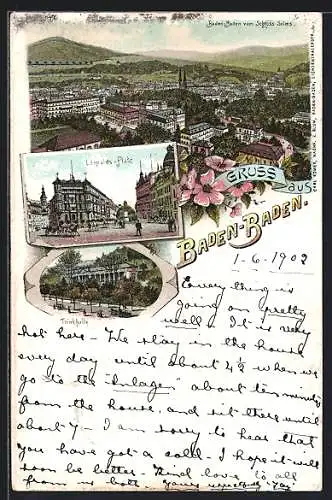 Baden-Baden vom Schloss Solms
Leopolds-Platz
GRUSS
AUS
BADEN-BADEN.
Trinkhalle
1-6-1902
Every thing is
going on pretty
well. It is very
hot here - We stay in the house
every day until about 4½ when we
go to the "Anlagen" about ten minutes
from the house, and sit there until
about 7 - I am sorry to hear that
you have got a cold. I hope it will
soon be better - Kind love to all
from us both. yours